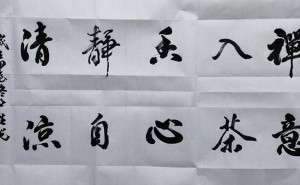 禪意
入茶
香心
靜自
清涼